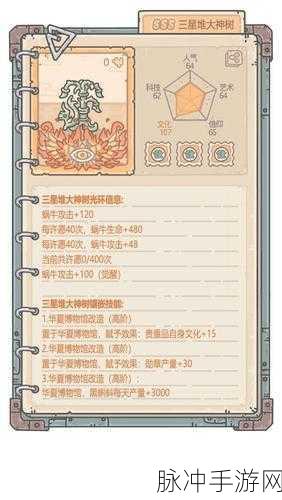 三星堆大神树
0
人气
64
科技
62
艺术
64
文化
107
信仰
65
三星堆大神树光环信息:
蜗牛攻击+120
每许愿40次，蜗牛生命+480
每许愿40次，蜗牛攻击+48
当前共许愿0/400次
蜗牛攻击+100（觉醒）
三星堆大神树镶嵌技能:
1.华夏博物馆改造（高阶）
置于华夏博物馆，赋予效果：贵重品自身文化+15
2.华夏博物馆改造（高阶）
置于华夏博物馆，赋予效果：勋章产量+30
3.华夏博物馆改造（高阶）:
华夏博物馆，黑蝌蚪每天产量+3000
脉冲手游网